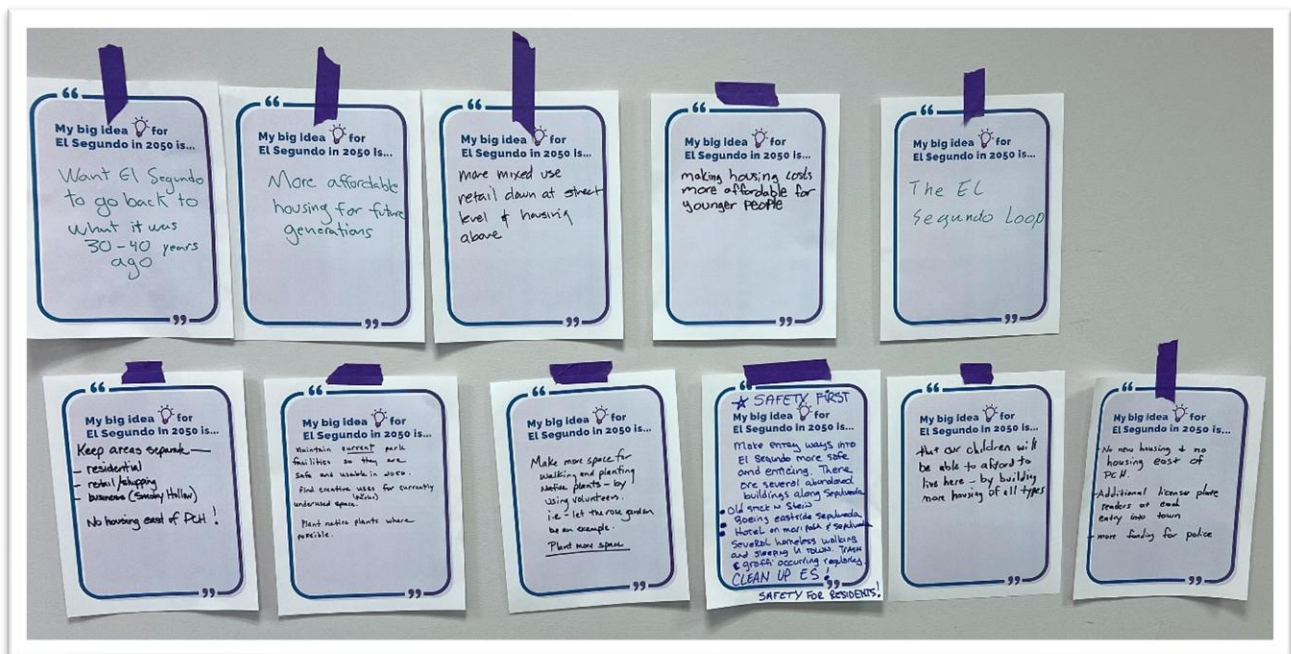 “
My big idea for
El Segundo in 2050 is...
Want El Segundo
to go back to
what it was
30-40 years
ago
”
“
My big idea for
El Segundo in 2050 is...
More affordable
housing for future
generations
”
“
My big idea for
El Segundo in 2050 is...
more mixed use
retail down at street
level & housing
above
”
“
My big idea for
El Segundo in 2050 is...
making housing costs
more affordable for
younger people
”
“
My big idea for
El Segundo in 2050 is...
The EL
Segundo Loop
”
“
My big idea for
El Segundo in 2050 is...
Keep areas separate —
- residential
- retail/shopping
- business (Smoky Hollow)
No housing east of PCH!
”
“
My big idea for
El Segundo in 2050 is...
Maintain current park
facilities so they are
safe and usable in 2050.
Find creative uses for currently
underused space.
Plant native plants where
possible.
”
“
My big idea for
El Segundo in 2050 is...
Make more space for
walking and planting
Native plants - by
using volunteers.
i.e - let the rose garden
be an example.
Plant more space
”
“
☆ SAFETY FIRST
My big idea for
El Segundo in 2050 is...
Make entry ways into
El Segundo more safe
and enticing. There
are several abandoned
buildings along Sepulveda
• Old Steak n Stein
• Boeing eastside Sepulveda
• Hotel on mariposa & sepulveda
Several homeless walking
and sleeping in town. Trash
& graffi occurring regularly.
CLEAN UP ES!
”
SAFETY FOR RESIDENTS!
“
My big idea for
El Segundo in 2050 is...
that our children will
be able to afford to
live here - by building
more housing of all types
”
“
My big idea for
El Segundo in 2050 is...
- No new housing & no
housing east of
PCH.
- Additional license plate
readers at each
entry into town
- more funding for police
”